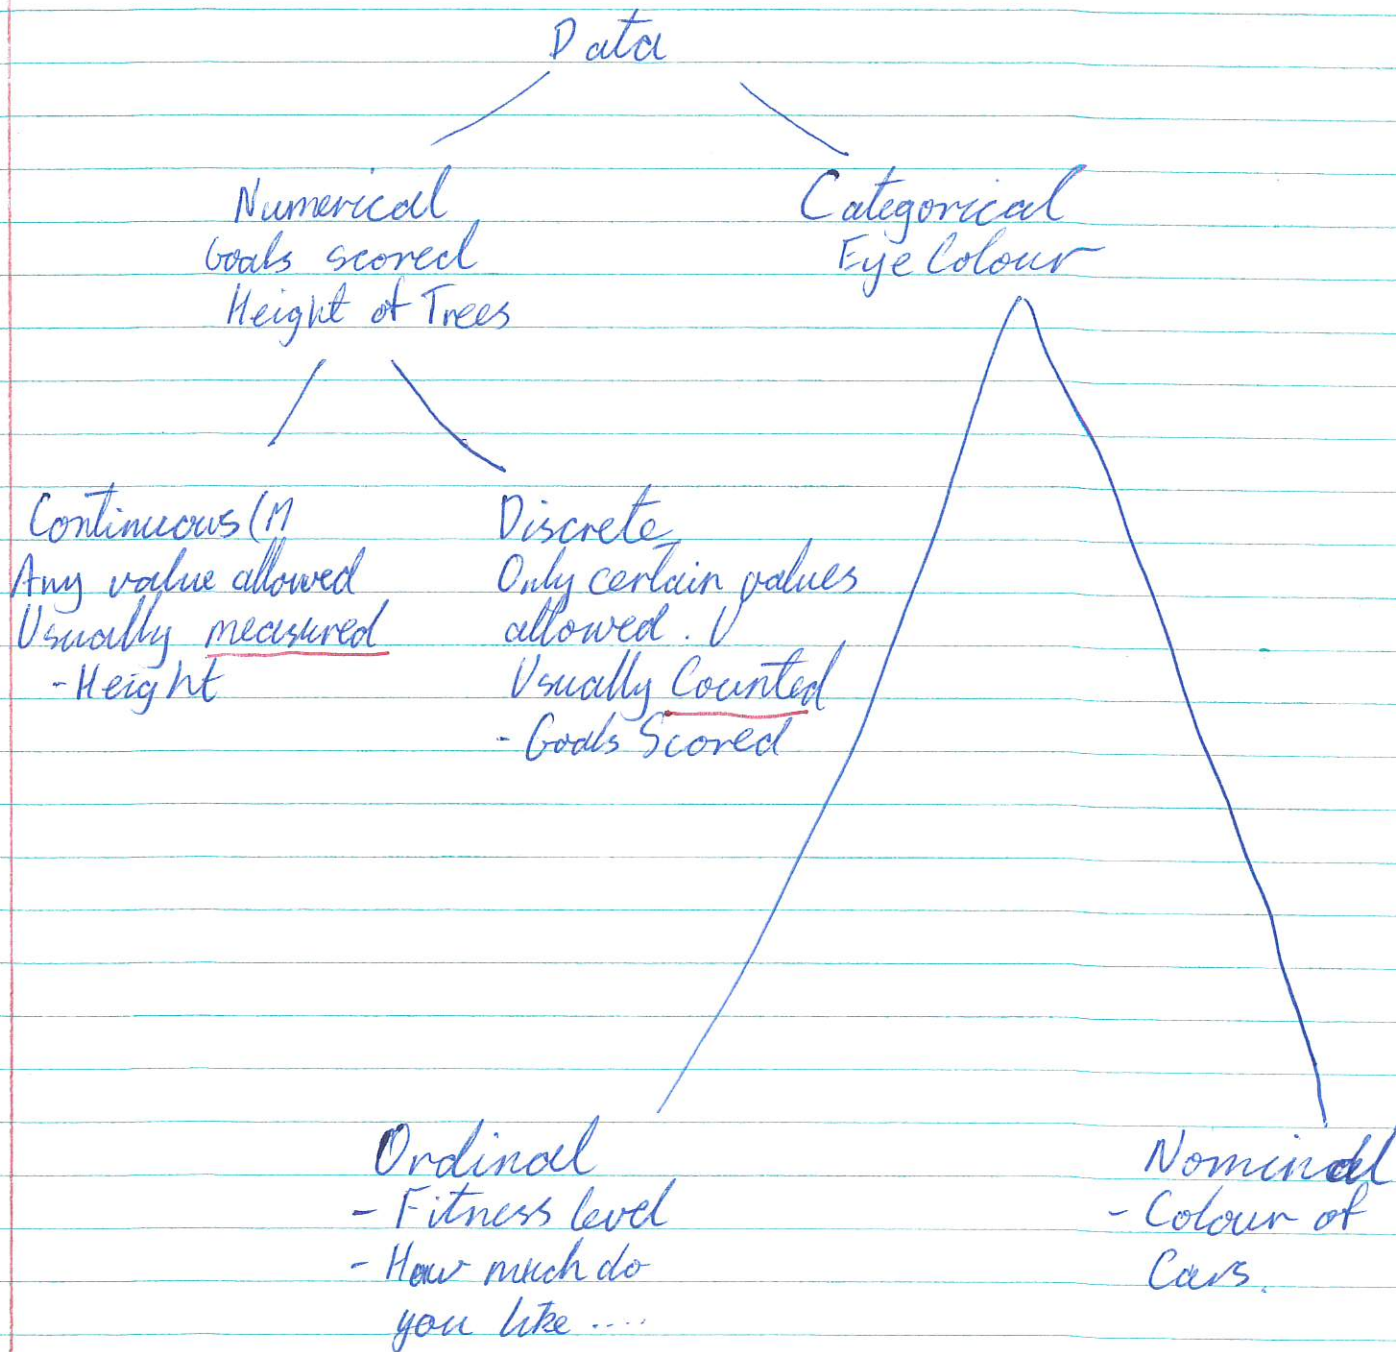 Data
Numerical
Goals scored
Height of Trees
Categorical
Eye Colour
Continuous (M
Any value allowed
Usually measured
- Height
Discrete
Only certain values
allowed. U
Usually Counted
- Goals Scored
Ordinal
- Fitness level
- How much do
you like ....
Nominal
- Colour of
Cars.